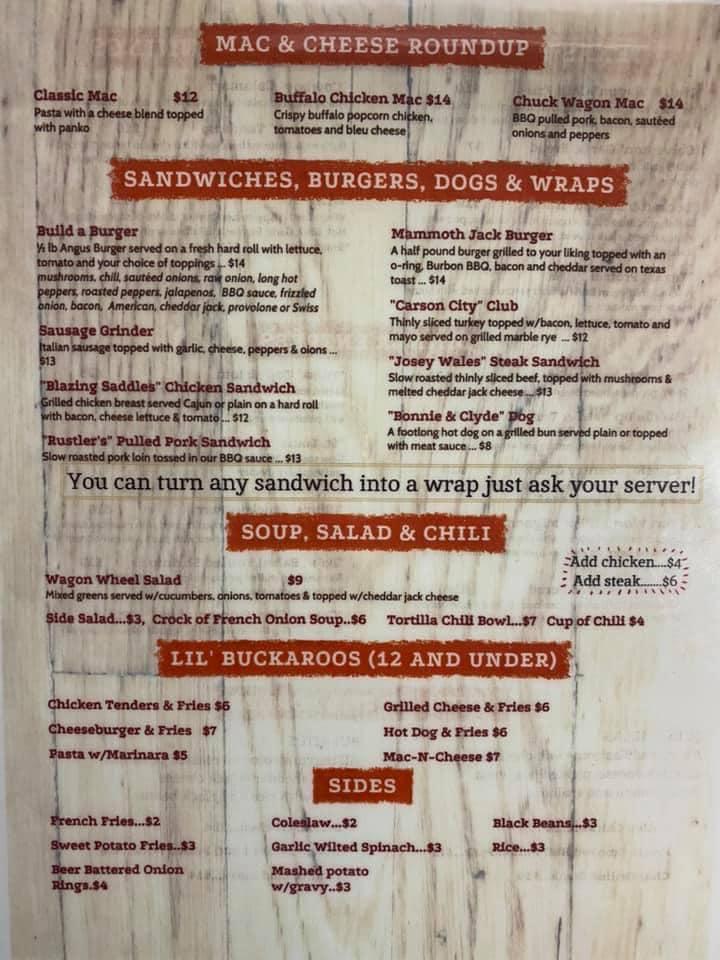 MAC & CHEESE ROUNDUP
Classic Mac $12
Pasta with a cheese blend topped
with panko
Buffalo Chicken Mac $14
Crispy buffalo popcorn chicken,
tomatoes and bleu cheese
Chuck Wagon Mac $14
BBQ pulled pork, bacon, sautéed
onions and peppers
SANDWICHES, BURGERS, DOGS & WRAPS
Build a Burger
½ lb Angus Burger served on a fresh hard roll with lettuce,
tomato and your choice of toppings ... $14
mushrooms, chili, sautéed onions, raw onion, long hot
peppers, roasted peppers, jalapenos, BBQ sauce, frizzled
onion, bacon, American, cheddar jack, provolone or Swiss
Sausage Grinder
Italian sausage topped with garlic, cheese, peppers & oions ...
$13
"Blazing Saddles" Chicken Sandwich
Grilled chicken breast served Cajun or plain on a hard roll
with bacon, cheese lettuce & tomato ... $12
"Rustler's" Pulled Pork Sandwich
Slow roasted pork loin tossed in our BBQ sauce ... $13
Mammoth Jack Burger
A half pound burger grilled to your liking topped with an
o-ring, Burbon BBQ, bacon and cheddar served on texas
toast ... $14
"Carson City" Club
Thinly sliced turkey topped w/bacon, lettuce, tomato and
mayo served on grilled marble rye ... $12
"Josey Wales" Steak Sandwich
Slow roasted thinly sliced beef, topped with mushrooms &
melted cheddar jack cheese ... $13
"Bonnie & Clyde" Dog
A footlong hot dog on a grilled bun served plain or topped
with meat sauce ... $8
You can turn any sandwich into a wrap just ask your server!
SOUP, SALAD & CHILI
Add chicken....$4
Add steak.......$6
Wagon Wheel Salad $9
Mixed greens served w/cucumbers, onions, tomatoes & topped w/cheddar jack cheese
Side Salad...$3, Crock of French Onion Soup..$6 Tortilla Chili Bowl...$7 Cup of Chili $4
LIL' BUCKAROOS (12 AND UNDER)
Chicken Tenders & Fries $6
Cheeseburger & Fries $7
Pasta w/Marinara $5
Grilled Cheese & Fries $6
Hot Dog & Fries $6
Mac-N-Cheese $7
SIDES
French Fries...$2
Sweet Potato Fries..$3
Beer Battered Onion
Rings.$4
Coleslaw...$2
Garlic Wilted Spinach...$3
Mashed potato
w/gravy..$3
Black Beans...$3
Rice...$3